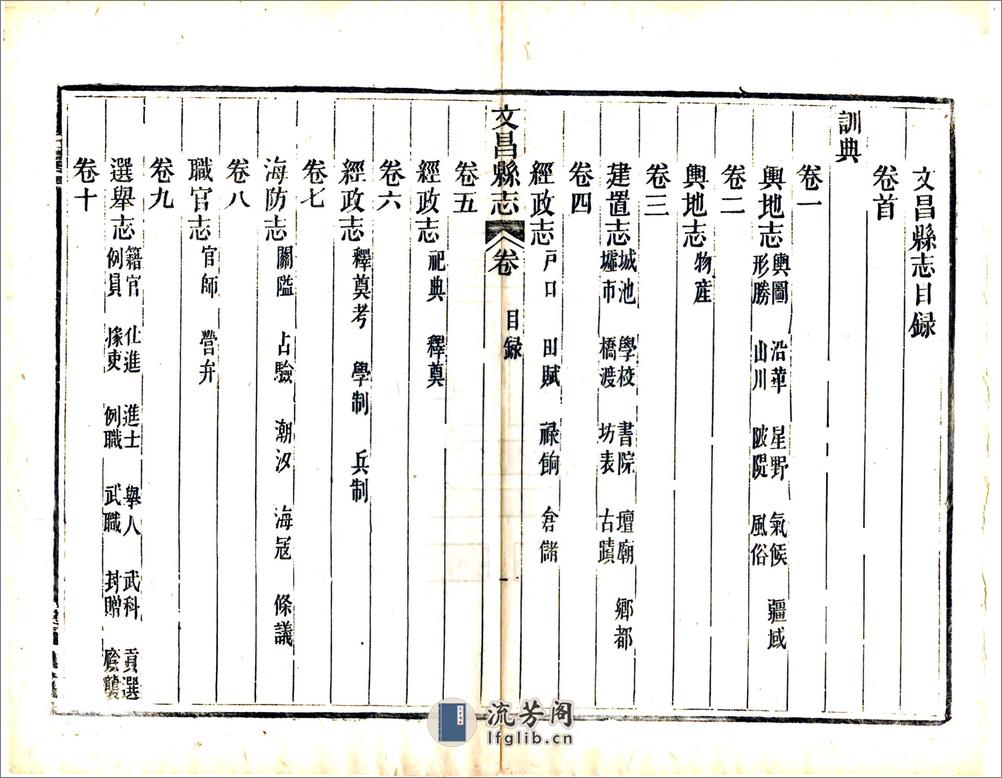 文昌縣志目録
卷首
訓典
卷一
輿地志 輿圖 沿革 星野 氣候 疆域
形勝 山川 陂隄 風俗
卷二
輿地志 物産
卷三
建置志 城池 學校 書院 壇廟 鄉都
墟市 橋渡 坊表 古蹟
卷四
經政志 戸口 田賦 祿餉 倉儲
文昌縣志 卷 目録 一
卷五
經政志 祀典 釋奠
卷六
經政志 釋奠考 學制 兵制
卷七
海防志 關隘 占驗 潮汐 海寇 條議
卷八
職官志 官師 營弁
卷九
選舉志 籍官 仕進 進士 舉人 武科 貢選
例員 掾吏 例職 武職 封贈 廕襲
卷十
流芳阁
lfglib.cn